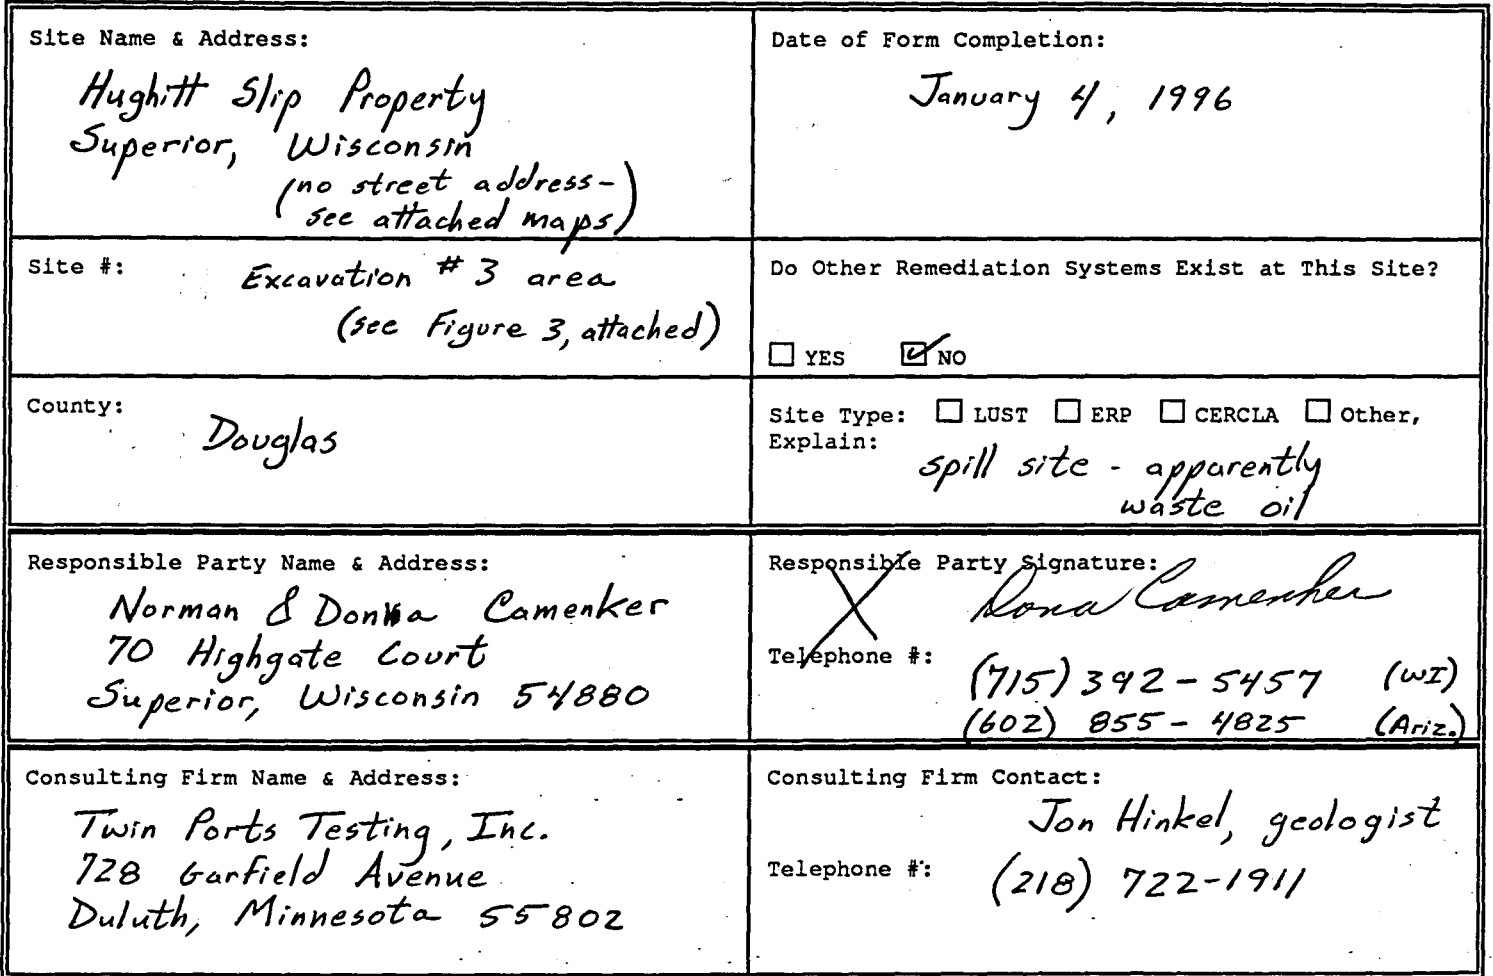 Site Name & Address:
Hughitt Slip Property
Superior, Wisconsin
(no street address-
see attached maps)
Date of Form Completion:
January 4, 1996
Site #:
Excavation #3 area
(see Figure 3, attached)
Do Other Remediation Systems Exist at This Site?
YES NO
County:
Douglas
Site Type: LUST ERP CERCLA Other,
Explain:
spill site - apparently
waste oil
Responsible Party Name & Address:
Norman & Donna Camenker
70 Highgate Court
Superior, Wisconsin 54880
Responsible Party Signature:
X Dona Camenker
Telephone #:
(715) 392-5457 (WI)
(602) 855-4825 (Ariz.)
Consulting Firm Name & Address:
Twin Ports Testing, Inc.
728 Garfield Avenue
Duluth, Minnesota 55802
Consulting Firm Contact:
Jon Hinkel, geologist
Telephone #:
(218) 722-1911